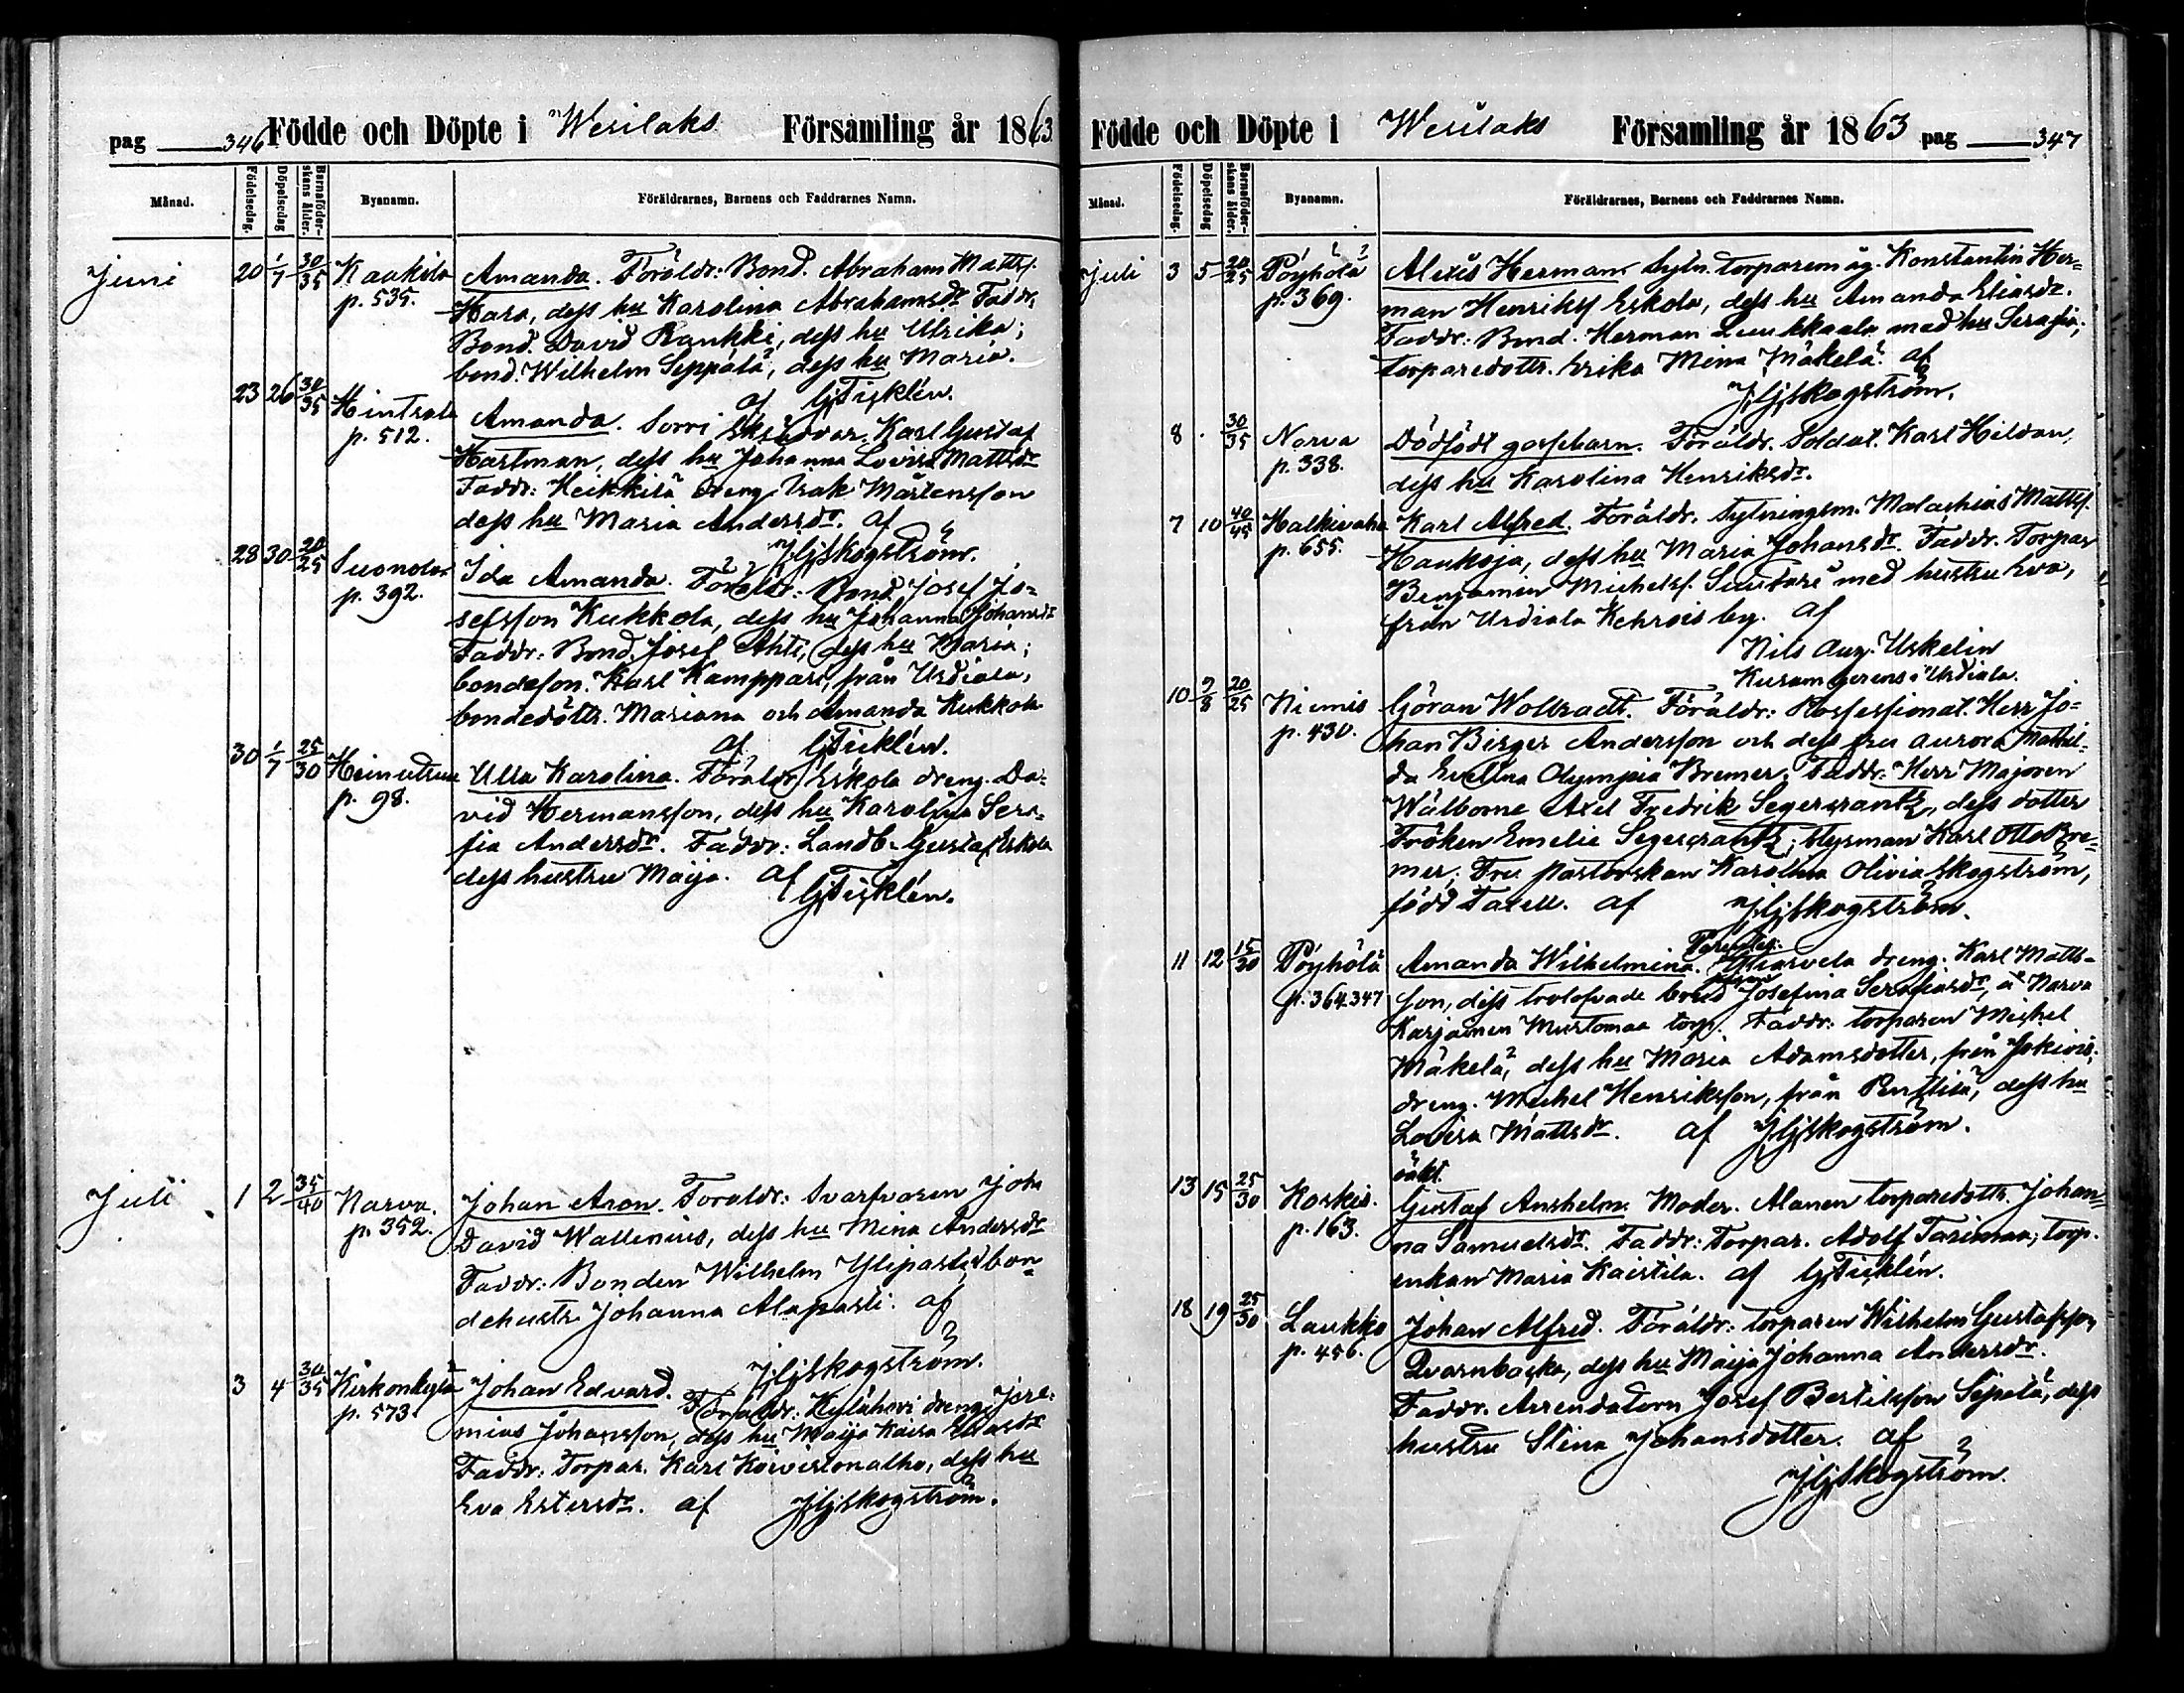 pag 346 Födde och Döpte i Wesilaks Församling år 1863.
Månad. Födelsedag. Döpelsedag Barnaföderskans ålder. Byanamn. Föräldrarnes, Barnens och Faddrarnes Namn.
Juni 20 1/7 30/35 Kaakila p. 535. Amanda. Föräldr: Bond. Abraham Mattsf.
Hara, dess hu Karolina Abrahamsdr. Faddr.
Bond. David Rankki, dess hu Ulrika;
bond. Wilhelm Seppälä, dess hu Maria.
af GFicklén.
23 26 30/35 Hintsala p. 512. Amanda. Sorri Karl Gustaf
Hartman, dess hu Johanna Lovisa Mattsdr
Faddr: Heikkilä dreng Isak Mårtensson
dess hu Maria Andersdr. af
JGSkogström.
28 30 20/25 Suonola p. 392. Ida Amanda. Föräldr. Bond. Josef Jo-
sefsson Kukkola, dess hu Johanna Johansdr
Faddr: Bond. Josef Ahti, dess hu Maria;
bondeson. Karl Kamppari, från Urdiala,
bondedöttr. Mariana och Amanda Kukkola
af GFicklén.
30 1/7 25/30 Heinutsuu p. 98. Ulla Karolina. Föräldr. Eskola dreng. Da-
vid Hermansson, dess hu Karolina Sera-
fia Andersdr. Faddr: Landb. Gustaf Eskola
dess hustru Maija. af
GFicklén.
Juli 1 2 35/40 Narva. p. 352. Johan Aron. Föräldr: Svarfvaren Joh
David Wallenius, dess hu Mina Andersdr
Faddr: Bonden Wilhelm Ylipasti, bon-
dehustr. Johanna Alapasti. af
JGSkogström.
3 4 30/35 Kirkonkylä p. 573. Johan Edvard. Föräldr: Kylähovi dreng Jere-
mias Johansson, dess hu Maija Kaisa Eliasdr
Faddr: Torpar. Karl Koivistonalho, dess hu
Eva Estersdr. af JGSkogström.
Födde och Döpte i Wesilaks Församling år 1863 pag 347
Månad. Födelsedag. Döpelsedag Barnaföderskans ålder. Byanamn. Föräldrarnes, Barnens och Faddrarnes Namn.
Juli 3 5 20/25 Pöyhölä p. 369. Alexis Herman. Sytn. torparemåg. Konstantin Her-
man Henriksf Eskola, dess hu Amanda Eliasdr.
Faddr: Bond. Herman Luukkaala med hu Serafia;
torparedottr. Erika Mena Mäkelä. af
JGSkogström.
8 . 30/35 Narva p. 338. Dödfödt gossebarn. Föräldr. Soldat. Karl Hildan,
dess hu Karolina Henriksdr.
7 10 40/45 Halkivaha p. 655. Karl Alfred. Föräldr. Sytningsm. Malachias Mattsf.
Haukoja, dess hu Maria Johansdr. Faddr. Torpar
Benjamin Michelsf. Suutari med hustru Eva,
från Urdiala Kehrois by. af
Nils Aug. Uskelin
Kuram gerens i Urdiala.
10 9/8 20/25 Niemis p. 430. Göran Wollradt. Föräldr: Possessionat. Herr Jo-
han Birger Andersson och dess fru Aurora Mathil-
da Evelina Olympia Bremer. Faddr: Herr Majoren
Wälborne Axel Fredrik Segercrantz, dess dotter
Fröken Emelie Segercrantz; styrman Karl Otto Bre-
mer; Fru Pastorskan Karolina Olivia Skogström,
född Taxell. af JGSkogström.
11 12 15/20 Pöyhölä p. 364 347 Amanda Wilhelmina. dreng. Karl Matts-
son, dess trolofvade brud Josefina Serafiasdr, å Narva
Karjainen Mustamaa torp. Faddr: torparen Michel
Mäkelä, dess hu Maria Adamsdotter, från Jokiois;
dreng. Michel Henriksson, från Penttilä, dess hu
Lovisa Mattsdr. af JGSkogström.
oäkt.
13 15 25/30 Koskis. p. 163. Gustaf Anshelm. Moder. Alanen torparedottr. Johan-
na Samuelsdr. Faddr: Torpar. Adolf Tarimaa; torp.
enkan Maria Kaistila. af GFicklén.
18 19 25/30 Laukko p. 456. Johan Alfred. Föräldr: torparen Wilhelm Gustafsson
Qvarnbacka, dess hu Maija Johanna Andersdr.
Faddr. Arrendatorn Josef Bertilsson Sepelä, dess
hustru Stina Johansdotter. af
JGSkogström.